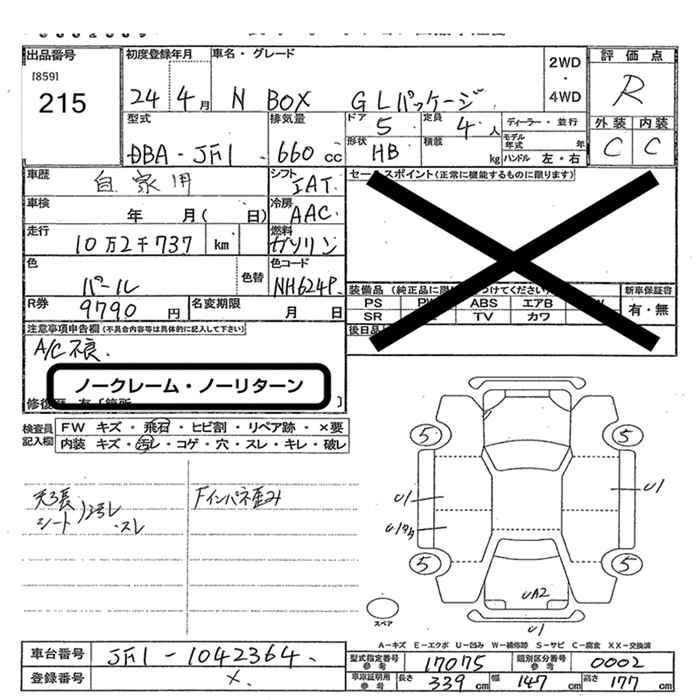 出品番号
[859]
215
初度登録年月
24年 4月
車名・グレード
N BOX GLパッケージ
2WD
・
4WD
評価点
R
外装 内装
C C
型式
DBA-JF1
排気量
660 cc
ドア
5
定員
4人
ディーラー・並行
形状
HB
積載
kg
モデル年式 年
ハンドル 左・右
車歴
自家用
シフト
IAT.
セールスポイント(正常に機能するものに限ります)
車検
年 月( 日)
冷房
AAC.
走行
10万2千737 km
燃料
ガソリン
色
パール
色替
色コード
NH624P.
装備品
PS ABS エアB
SR TV カワ
新車保証書
有・無
R券
9790円
名変期限
月 日
注意事項申告欄(不具合内容等は具体的に記入して下さい)
A/C不良.
ノークレーム・ノーリターン
検査員記入欄
FW キズ・飛石・ヒビ割・リペア跡・×要
内装 キズ・汚レ・コゲ・穴・スレ・キレ・破レ
天張
シート
汚レ
・スレ
Fインパネ歪み
5 5
U1 U1
5 5
UA2
U1
スペア
A-キズ E-エクボ U-凹み W-補修跡 S-サビ C-腐食 XX-交換済
車台番号
JF1-1042364.
型式指定番号
参考
17075
類別区分番号
参考
0002
登録番号
×.
車庫証明用
参考
長さ 339cm 幅 147cm 高さ 177cm